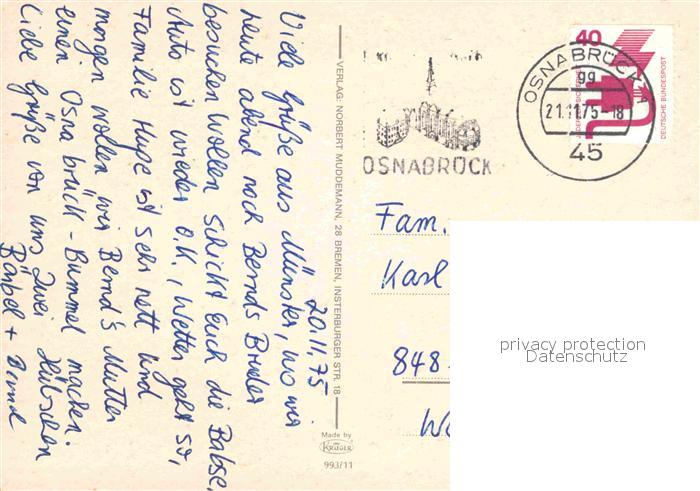 20.11.75
Viele Grüße aus Münster, wo wir
heute abend noch Bernds Bruder
besuchen wollen schickt Euch die Babse.
Auto ist wieder o.K., Wetter geht so,
Familie Hupe ist sehr nett und
morgen wollen wir Bernd's Mutter
einen Osnabrück-Bummel machen.
Liebe Grüße von uns zwei Hübschen
Bärbel + Bernd
VERLAG: NORBERT MUDDEMANN, 28 BREMEN, INSTERBURGER STR. 18
Made by
KRÜGER
993/11
OSNABRÜCK
OSNABRÜCK 1
gg
21.11.75-18
45
40
DEUTSCHE BUNDESPOST
Fam.
Karl
848
privacy protection
Datenschutz